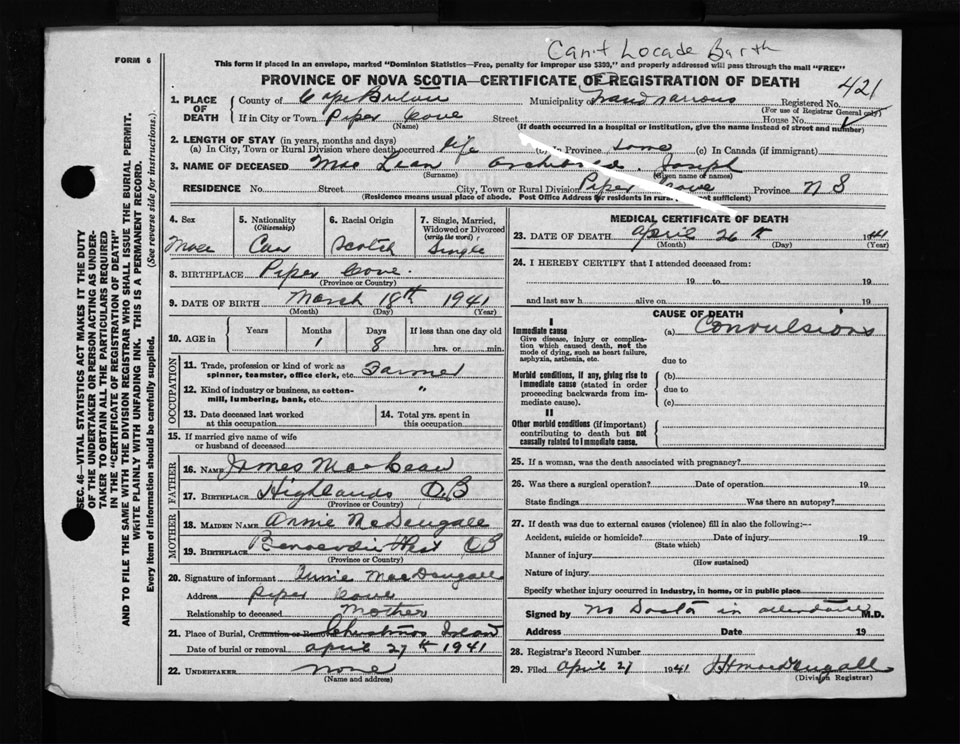 Can't Locade Barth
FORM 6
This form if placed in an envelope, marked "Dominion Statistics—Free, penalty for improper use $300," and properly addressed will pass through the mail "FREE"
PROVINCE OF NOVA SCOTIA—CERTIFICATE OF REGISTRATION OF DEATH
421
1. PLACE OF DEATH
County of Cape Breton
Municipality Grand Narrows
Registered No.
(For use of Registrar General only)
If in City or Town Piper Cove
(Name)
Street
House No.
(If death occurred in a hospital or institution, give the name instead of street and number)
2. LENGTH OF STAY (in years, months and days)
(a) In City, Town or Rural Division where death occurred life
(b) In Province
(c) In Canada (if immigrant)
3. NAME OF DECEASED Mac Lean Archibald, Joseph
(Surname)
(Given name or names)
RESIDENCE No.
Street
City, Town or Rural Division Piper Cove
Province N S
(Residence means usual place of abode. Post Office Address for residents in rural not sufficient)
4. Sex
Male
5. Nationality
(Citizenship)
Can
6. Racial Origin
Scotch
7. Single, Married, Widowed or Divorced
(write the word)
Single
8. BIRTHPLACE Piper Cove.
(Province or Country)
9. DATE OF BIRTH March 18th 1941
(Month) (Day) (Year)
10. AGE in
Years
Months
1
Days
8
If less than one day old
hrs. or min.
OCCUPATION
11. Trade, profession or kind of work as spinner, teamster, office clerk, etc. Farmer
12. Kind of industry or business, as cotton-mill, lumbering, bank, etc. "
13. Date deceased last worked at this occupation
14. Total yrs. spent in this occupation
15. If married give name of wife or husband of deceased
FATHER
16. NAME James MacLean
17. BIRTHPLACE Highlands C B
(Province or Country)
MOTHER
18. MAIDEN NAME Annie McDougall
19. BIRTHPLACE C B
(Province or Country)
20. Signature of informant Annie MacDougall
Address Piper Cove
Relationship to deceased Mother
21. Place of Burial, Cremation or Removal Christmas Island
Date of burial or removal April 27th 1941
22. UNDERTAKER none
(Name and address)
MEDICAL CERTIFICATE OF DEATH
23. DATE OF DEATH April 26th 1941
(Month) (Day) (Year)
24. I HEREBY CERTIFY that I attended deceased from:
19 to 19
and last saw h alive on 19
CAUSE OF DEATH
I
Immediate cause
Give disease, injury or complication which caused death, not the mode of dying, such as heart failure, asphyxia, asthenia, etc.
(a) Convulsions
due to
Morbid conditions, if any, giving rise to immediate cause (stated in order proceeding backwards from immediate cause).
(b)
due to
(c)
II
Other morbid conditions (if important) contributing to death but not causally related to immediate cause.
25. If a woman, was the death associated with pregnancy?
26. Was there a surgical operation? Date of operation 19
State findings Was there an autopsy?
27. If death was due to external causes (violence) fill in also the following:—
Accident, suicide or homicide? Date of injury 19
(State which)
Manner of injury
(How sustained)
Nature of injury
Specify whether injury occurred in industry, in home, or in public place
Signed by no Doctor in attendance M.D.
Address Date 19
28. Registrar's Record Number
29. Filed April 27 1941 MacDougall
(Division Registrar)
SEC. 46—VITAL STATISTICS ACT MAKES IT THE DUTY
OF THE UNDERTAKER OR PERSON ACTING AS UNDER-
TAKER TO OBTAIN ALL THE PARTICULARS REQUIRED
IN THE "CERTIFICATE OF REGISTRATION OF DEATH"
AND TO FILE THE SAME WITH THE DIVISION REGISTRAR WHO SHALL ISSUE THE BURIAL PERMIT.
WRITE PLAINLY WITH UNFADING INK. THIS IS A PERMANENT RECORD.
Every item of information should be carefully supplied. (See reverse side for instructions.)